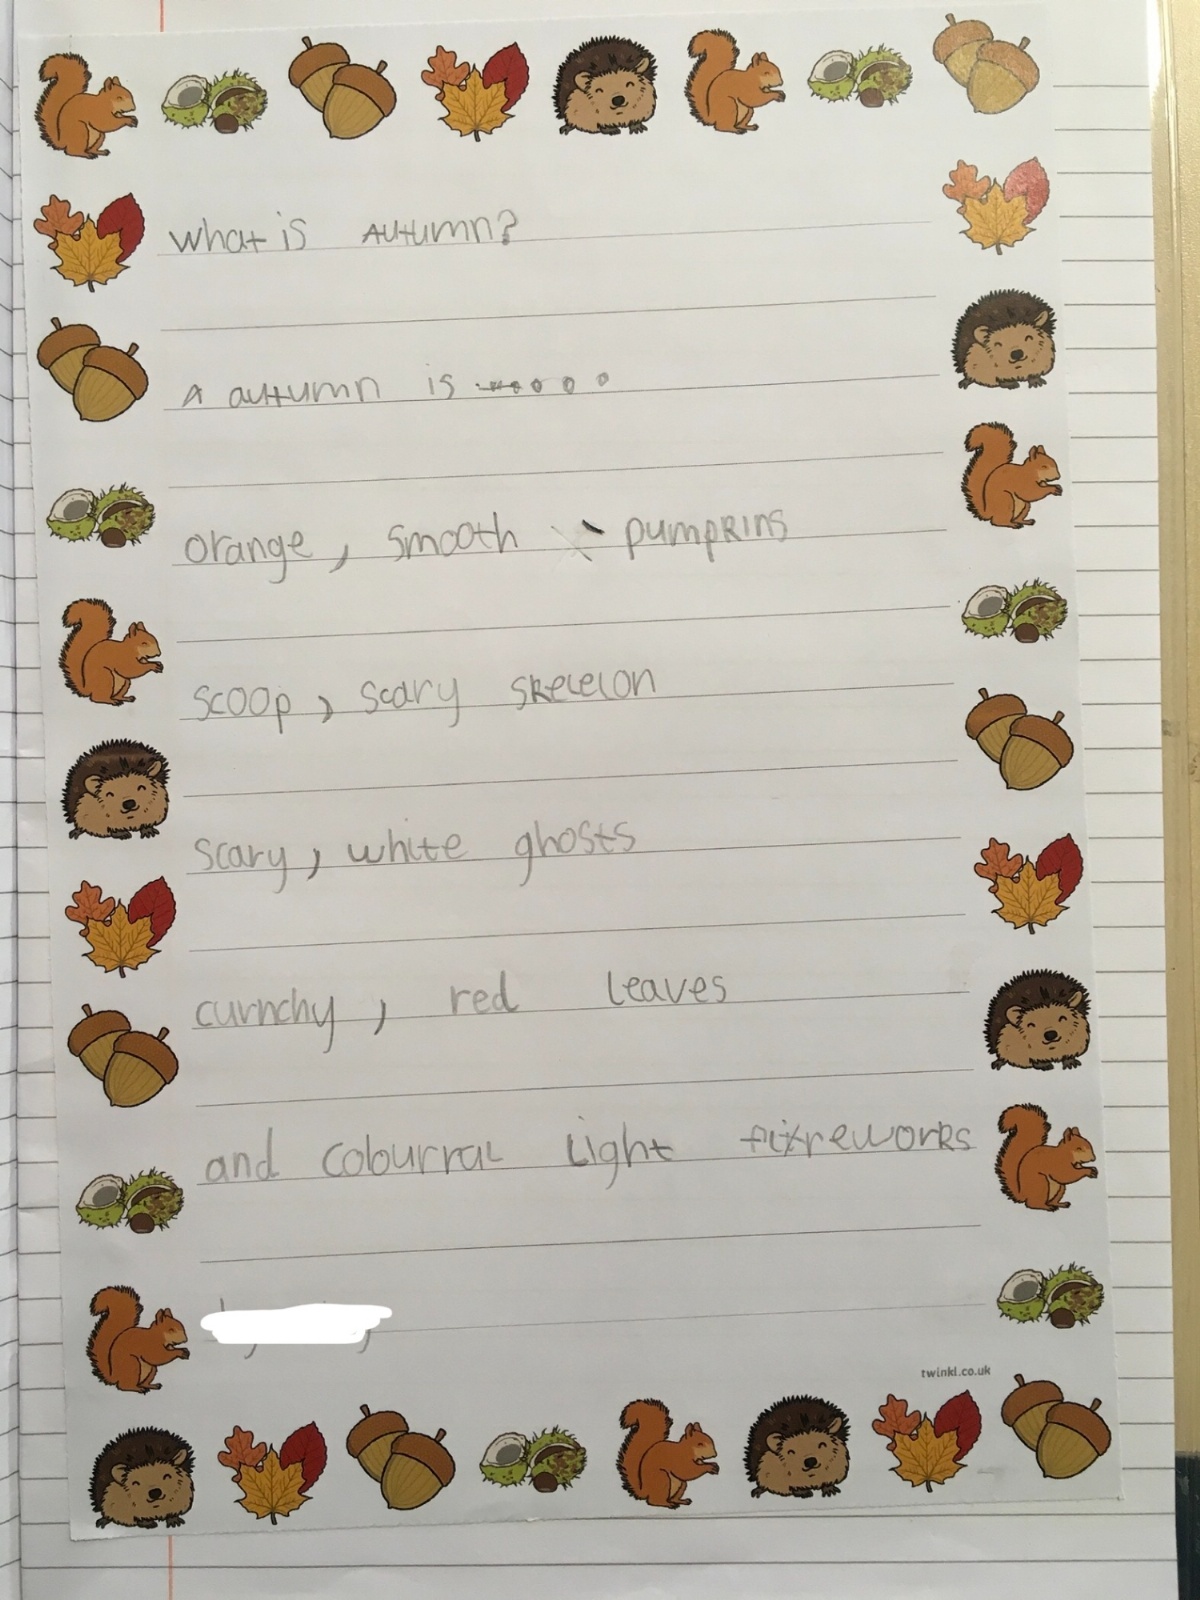 what is Autumn?
A autumn is .....
orange, smooth pumpkins
scoop, scary skelelon
scary, white ghosts
curnchy, red leaves
and colourral Light fixreworks
twinkl.co.uk